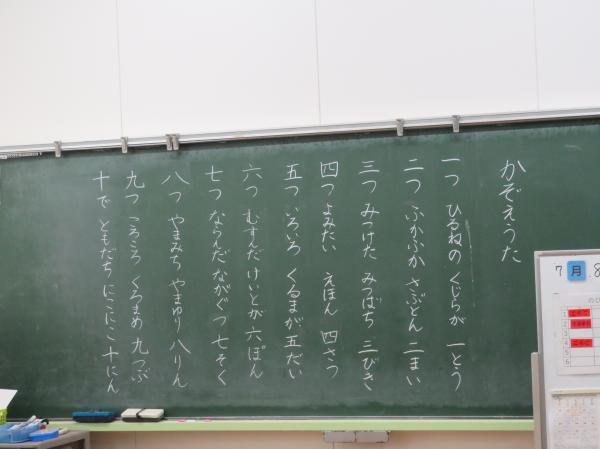 かぞえうた
一つ ひるねの くじらが 一とう
二つ ふかふか ざぶとん 二まい
三つ みつけた みつばち 三びき
四つ よみたい えほん 四さつ
五つ いろいろ くるまが 五だい
六つ むすんだ けいとが 六ぽん
七つ ならんだ ながぐつ 七そく
八つ やまみち やまゆり 八りん
九つ ころころ くろまめ 九つぶ
十で ともだち にこにこ 十にん
7 月 8
1
2
3
4
5
6